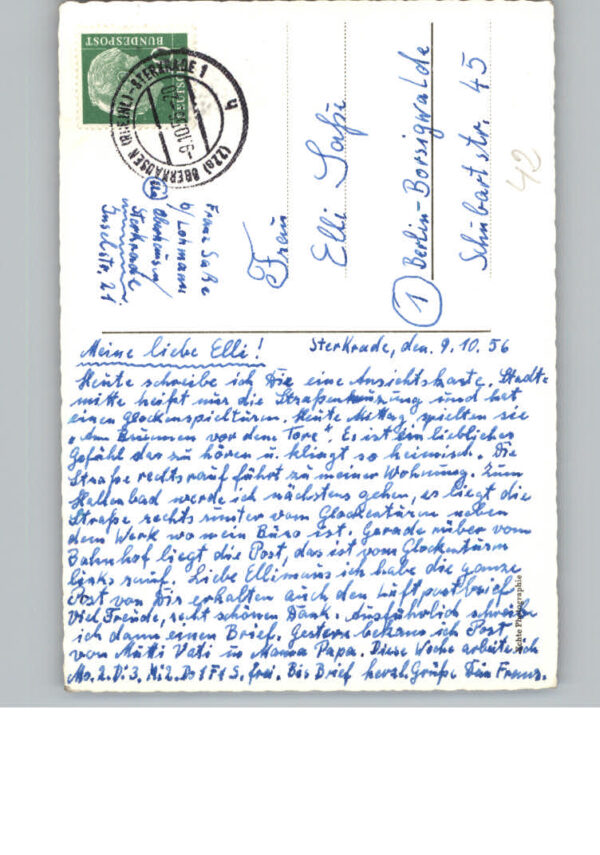 BUNDESPOST
(22a) OBERHAUSEN (RHEINL)-STERKRADE 1
u
Franz Saße
b/ Lohmann
(22a) Oberhausen/
Sterkrade
Inselstr. 21
Frau
Elli Saße
(1) Berlin-Borsigwalde
Schubartstr. 45
42
Meine liebe Elli!
Sterkrade, den. 9. 10. 56
Heute schreibe ich Dir eine Ansichtskarte. Stadt=
mitte heißt nur die Straßenkreuzung und hat
einen Glockenspielturm. Heute Mittag spielten sie
"Am Brunnen vor dem Tore". Es ist ein liebliches
Gefühl das zu hören u. klingt so heimisch. Die
Straße rechts rauf führt zu meiner Wohnung. Zum
Hallenbad werde ich nächstens gehen, es liegt die
Straße rechts runter vom Glockenturm neben
dem Werk wo mein Büro ist. Gerade rüber vom
Bahnhof liegt die Post, das ist vom Glockenturm
links rauf. Liebe Ellimaus ich habe die ganze
Post von Dir erhalten auch den Luftpostbrief
viel Freude, recht schönen Dank. Ausführlich schreibe
ich dann einen Brief. Gestern bekam ich Post
von Mutti Vati u Mama Papa. Diese Woche arbeite ich
Mo. 2. Di 3. Mi 2. Do 1 F 1 S. frei. Bis Brief herzl. Grüße Dein Franz.
Echte Photographie